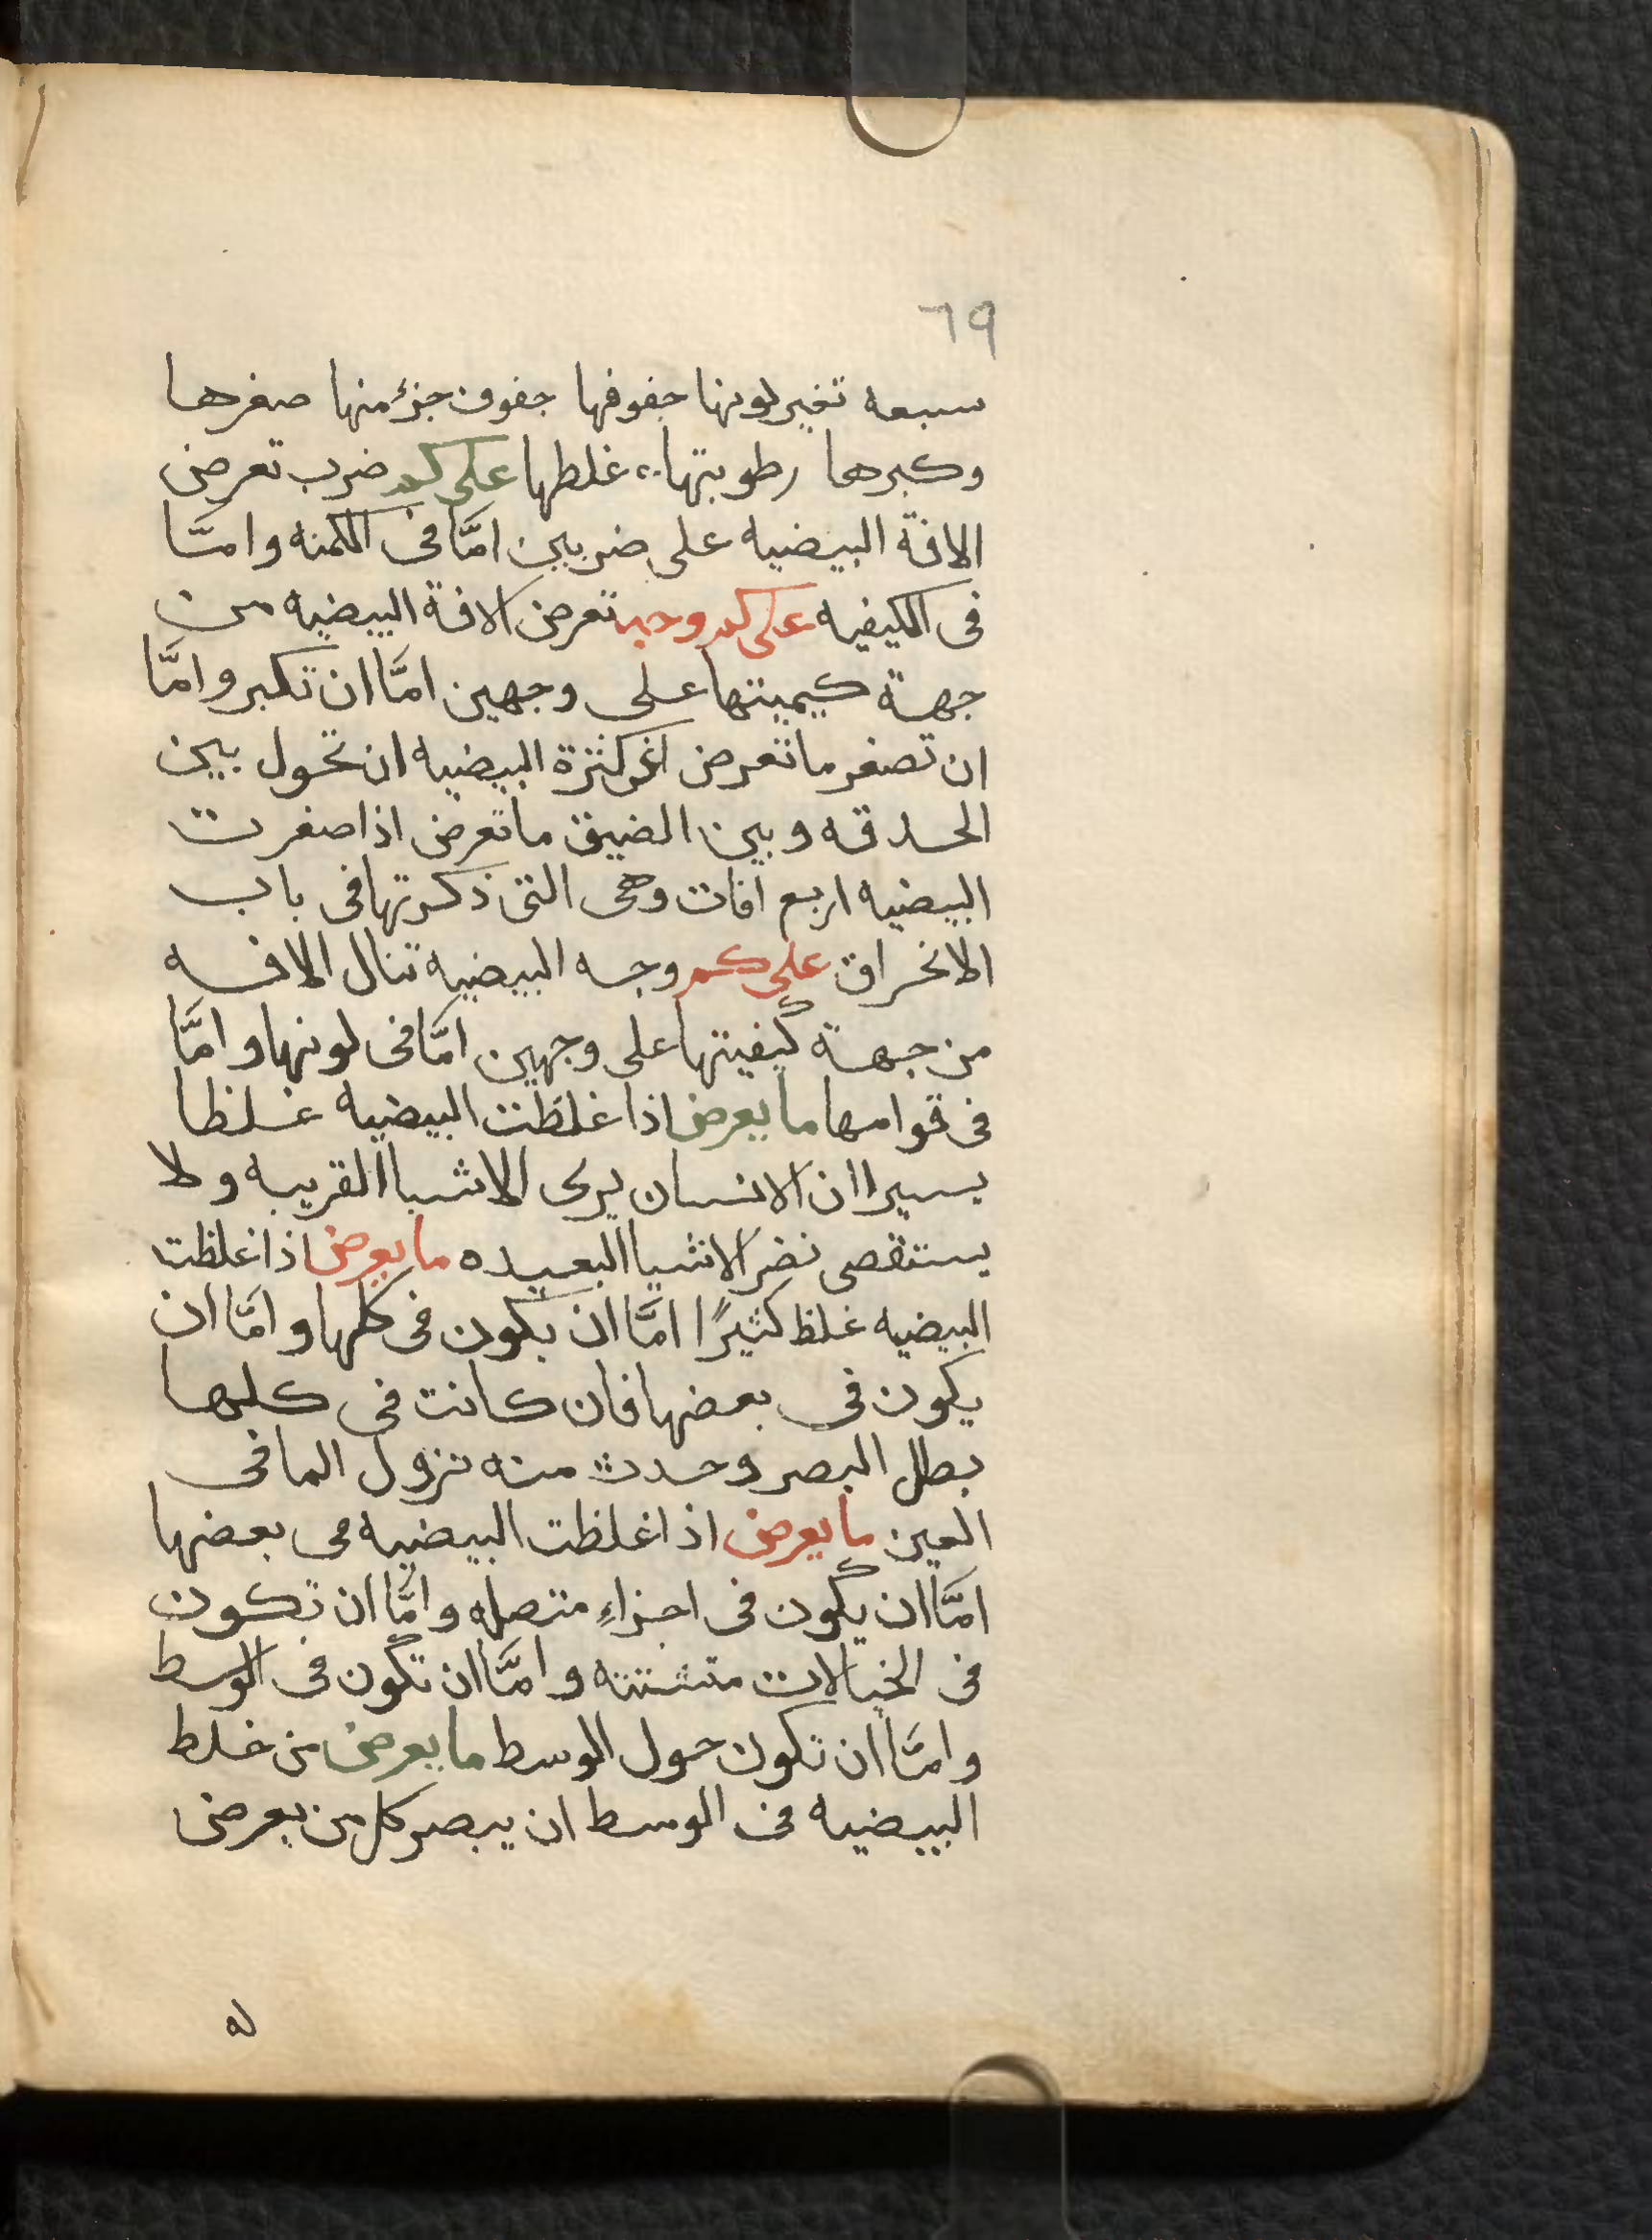 ٦٩
سبعه تغير لونها جفوفها جفوف جزء منها صغرها
وكبرها رطوبتها، غلظها على كم ضرب تعرض
الافة البيضيه على ضربين امَّا فى الكمنه وامَّا
فى الكيفيه على كم وجه تعرض الافة البيضيه من
جهة كيميتها على وجهين امَّا ان تكبر وامَّا
ان تصغر ما تعرض كثرة البيضيه ان تحول بين
الحدقه وبين الضيق ما تعرض اذا صغرت
البيضيه اربع افات وهى التى ذكرتها فى باب
الانخراق على كم وجه البيضيه تنال الافه
من جهة كيفيتها على وجهين امَّا فى لونها وامَّا
فى قوامها ما يعرض اذا غلظت البيضيه غلظا
يسيرا ان الانسان يرى الاشيا القريبه ولا
يستقصى نضر الاشيا البعيده ما يعرض اذا غلظت
البيضيه غلظ كثيرًا امَّا ان يكون فى كلها وامَّا ان
يكون فى بعضها فان كانت فى كلها
بطل البصر وحدث منه نزول الما فى
العين ما يعرض اذا غلظت البيضيه فى بعضها
امَّا ان يكون فى اجزاءِ متصله وامَّا ان تكون
فى الخيالات متشتته وامَّا ان تكون فى الوسط
وامَّا ان تكون حول الوسط ما يعرض من غلظ
البيضيه فى الوسط ان يبصر كل من يعرض
له